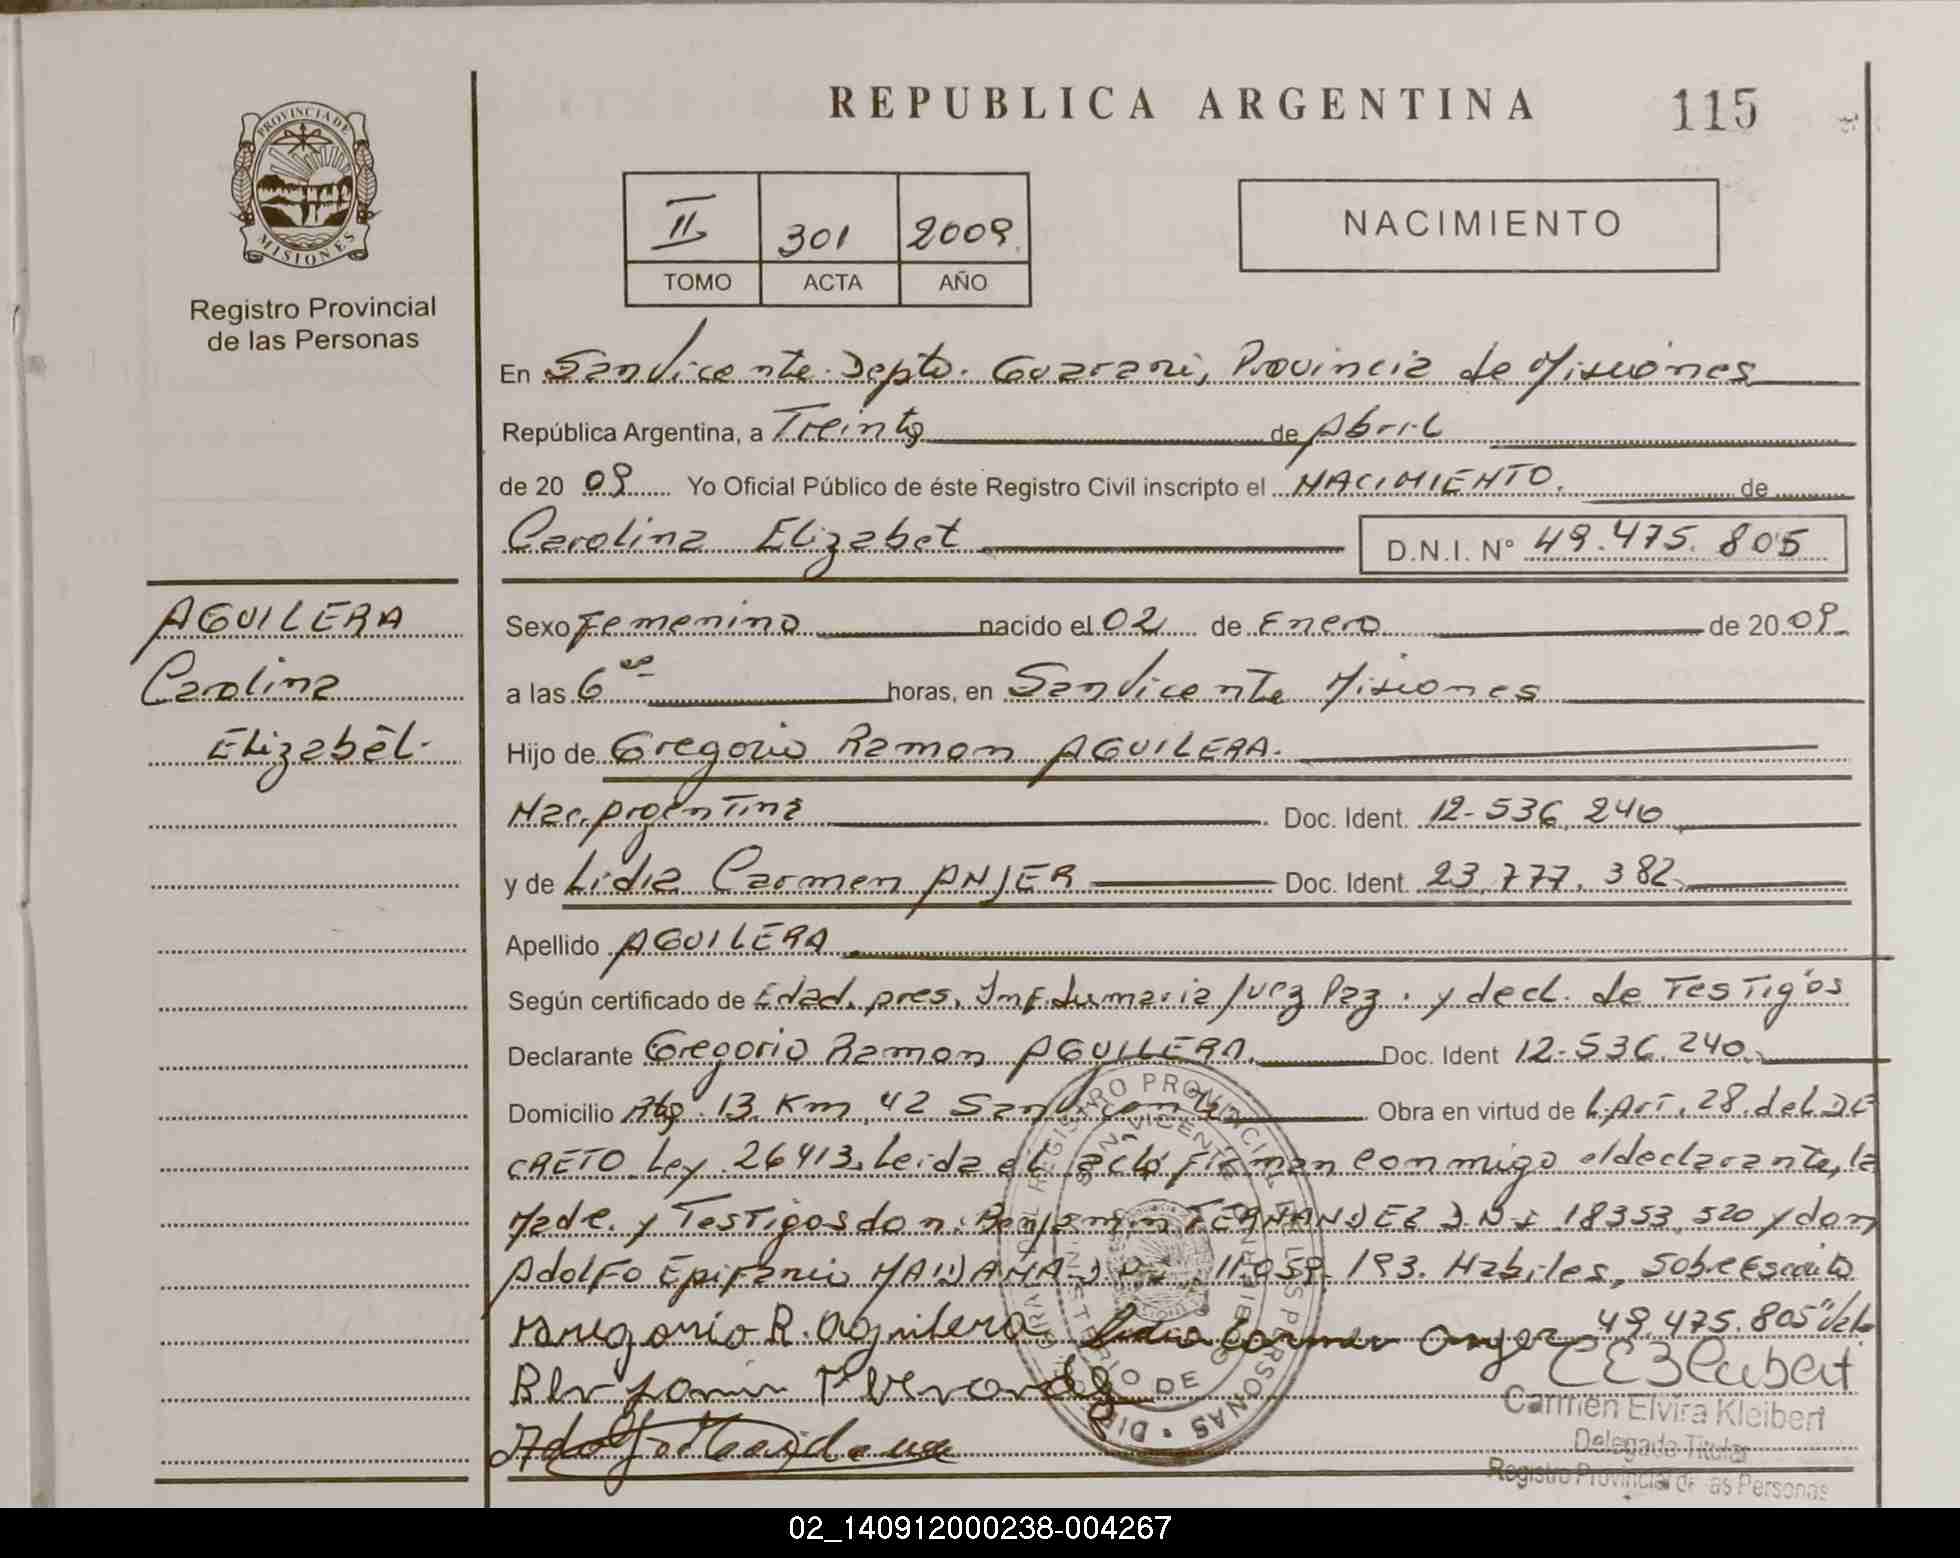 REPUBLICA ARGENTINA
115
PROVINCIA DE
MISIONES
Registro Provincial
de las Personas
II 301 2009
TOMO ACTA AÑO
NACIMIENTO
En San Vicente. Depto. Guarani, Provincia de Misiones
República Argentina, a Treinta de Abril
de 20 09 Yo Oficial Público de éste Registro Civil inscripto el NACIMIENTO. de
Carolina Elizabet D.N.I. N° 49.475.805
AGUILERA
Carolina
Elizabet.
Sexo Femenino nacido el 02 de Enero de 20 09
a las 6 hs horas, en San Vicente Misiones
Hijo de Gregorio Ramon AGUILERA.
Nac. Argentina Doc. Ident. 12.536.240
y de Lidia Carmen ANJER Doc. Ident. 23.777.382
Apellido AGUILERA
Según certificado de Edad. pres. Inf. Sumaria Juez Paz. y decl. de Testigos
Declarante Gregorio Ramon AGUILERA. Doc. Ident 12.536.240
Domicilio Rta 13 Km 42 San Vicente Obra en virtud de l. Art. 28. del DE
CRETO Ley 26413, Leida el acta firman conmigo el declarante, la
Made. y Testigos don: Benjamin FERNANDEZ D.N.I 18353.520 y don
Adolfo Epifanio MAIDANA D.N.I. 11.059.193. Habiles, Sobre Escrito
49.475.805" Vale
Gregorio R. Aguilera Lidia Carmen Anjer
CEKleibert
Benjamin Fernandez
Carmen Elvira Kleibert
Adolfo Maidana
Delegada Titular
Registro Provincial de las Personas
REGISTRO PROVINCIAL DE LAS PERSONAS
SAN VICENTE
MINISTERIO DE GOBIERNO
02_140912000238-004267